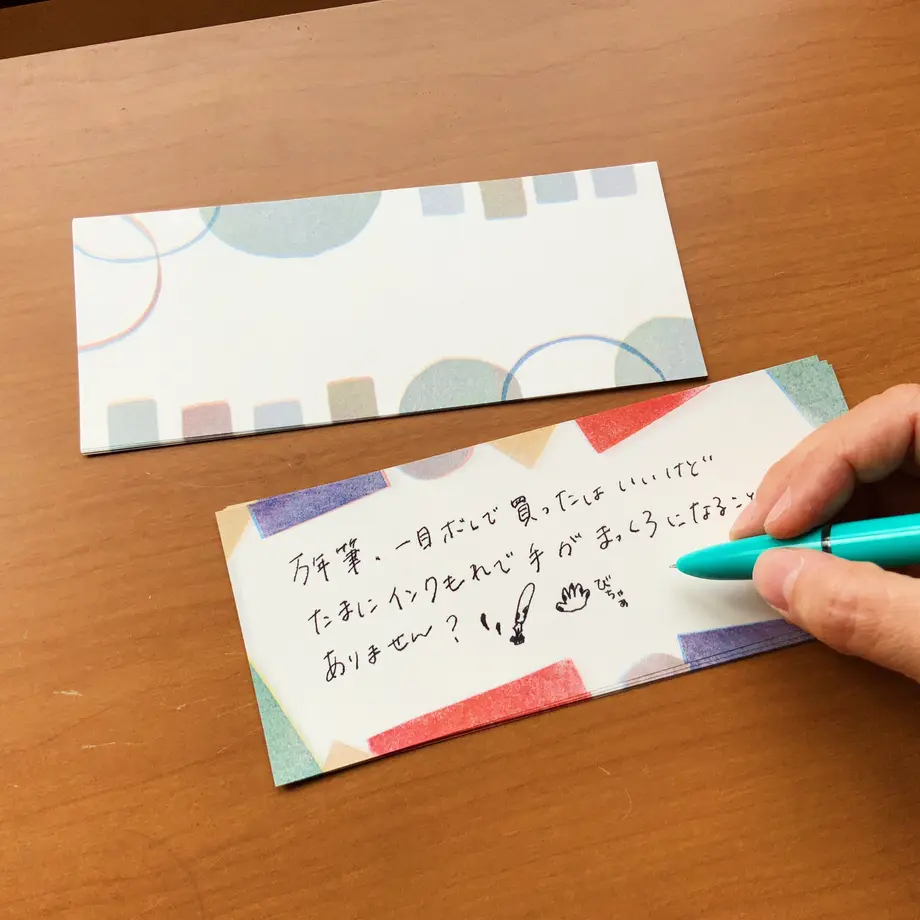 万年筆、一目ボレで買ったはいいけど
たまにインクもれで手がまっくろになること
ありません?
びちゃぁ